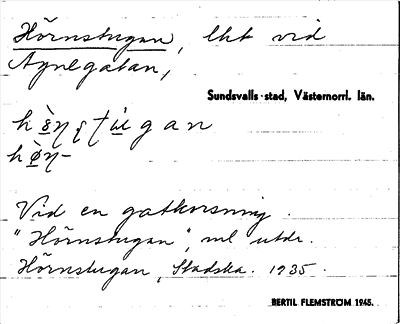 Hörnstugan, lht vid
Agnegatan,
Sundsvalls stad, Västernorrl. län.
Vid en gatkorsning.
"Hörnstugan", ml utdr.
Hörnstugan, Stadska. 1935.
BERTIL FLEMSTRÖM 1945.